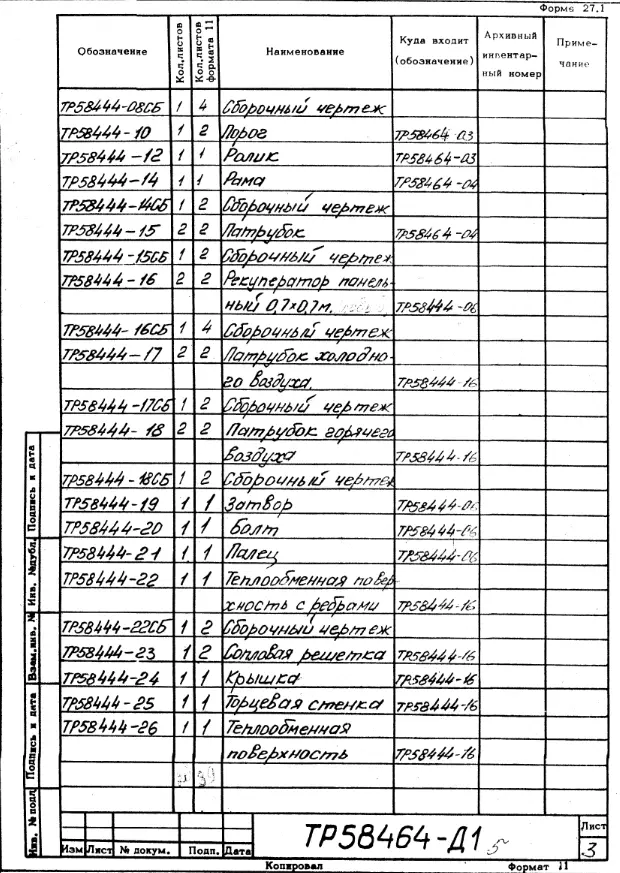 Форма 27.1
Обозначение Кол.листов Кол.листов формата 11 Наименование Куда входит (обозначение) Архивный инвентарный номер Примечание
ТР58444-08СБ 1 4 Сборочный чертеж
ТР58444-10 1 2 Порог ТР58464-03
ТР58444-12 1 1 Ролик ТР58464-03
ТР58444-14 1 1 Рама ТР58464-04
ТР58444-14СБ 1 2 Сборочный чертеж
ТР58444-15 2 2 Патрубок ТР58464-04
ТР58444-15СБ 1 2 Сборочный чертеж
ТР58444-16 2 2 Рекуператор панель-
ный 0,7×0,7м. ТР58444-06
ТР58444-16СБ 1 4 Сборочный чертеж
ТР58444-17 2 2 Патрубок холодно-
го воздуха. ТР58444-16
ТР58444-17СБ 1 2 Сборочный чертеж
ТР58444-18 2 2 Патрубок горячего
воздуха ТР58444-16
ТР58444-18СБ 1 2 Сборочный чертеж
ТР58444-19 1 1 Затвор ТР58444-06
ТР58444-20 1 1 Болт ТР58444-06
ТР58444-21 1 1 Палец ТР58444-06
ТР58444-22 1 1 Теплообменная повер-
хность с ребрами ТР58444-16
ТР58444-22СБ 1 2 Сборочный чертеж
ТР58444-23 1 2 Сопловая решетка ТР58444-16
ТР58444-24 1 1 Крышка ТР58444-16
ТР58444-25 1 1 Торцевая стенка ТР58444-16
ТР58444-26 1 1 Теплообменная
поверхность ТР58444-16
39
Подпись и дата
Инв. №дубл.
Взам.инв. №
Подпись и дата
Инв. №подл
Изм Лист № докум. Подп. Дата
ТР58464-Д1 5
Лист
3
Копировал Формат 11